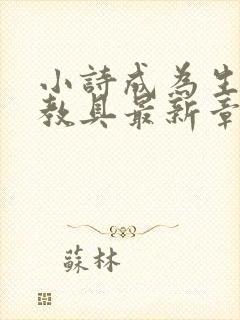 小詩成為生
教具最新章
蘇林